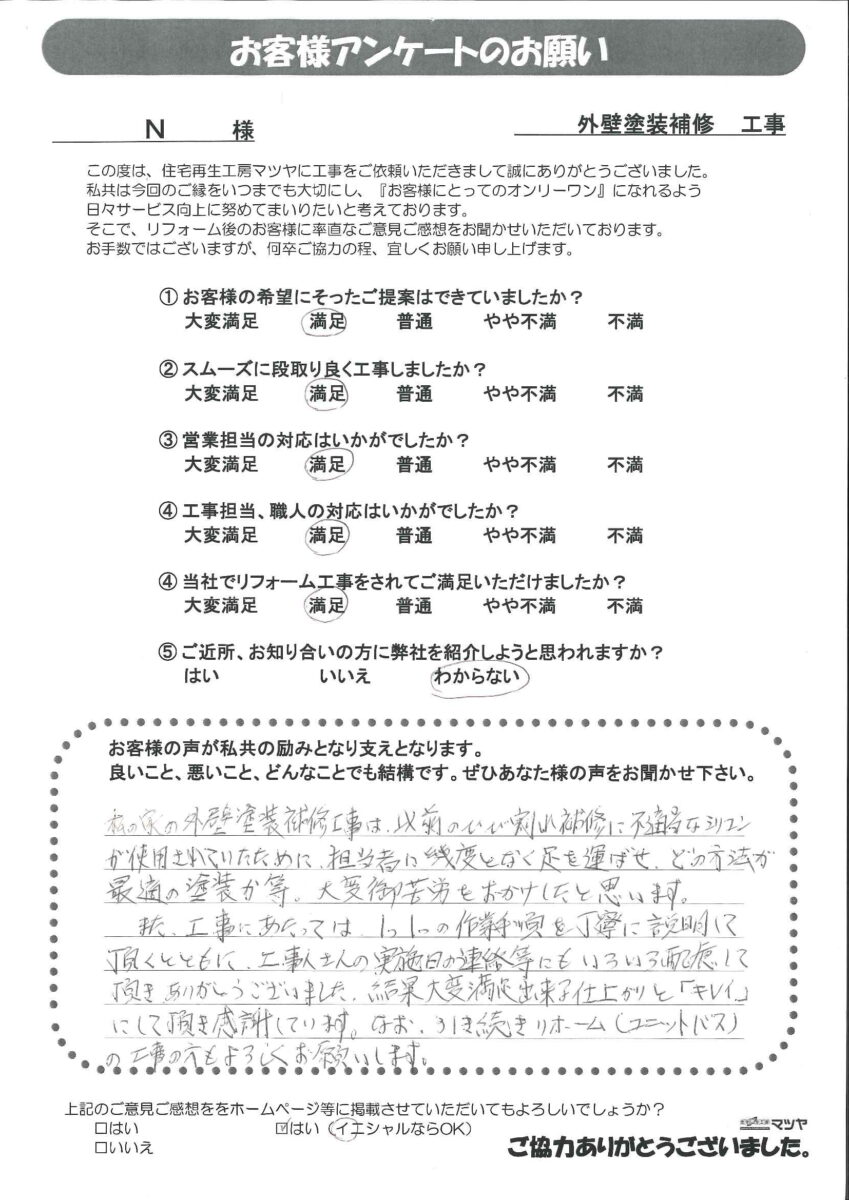 お客様アンケートのお願い
N 様
外壁塗装補修 工事
この度は、住宅再生工房マツヤに工事をご依頼いただきまして誠にありがとうございました。
私共は今回のご縁をいつまでも大切にし、『お客様にとってのオンリーワン』になれるよう
日々サービス向上に努めてまいりたいと考えております。
そこで、リフォーム後のお客様に率直なご意見ご感想をお聞かせいただいております。
お手数ではございますが、何卒ご協力の程、宜しくお願い申し上げます。
① お客様の希望にそったご提案はできていましたか？
大変満足 満足 普通 やや不満 不満
② スムーズに段取り良く工事しましたか？
大変満足 満足 普通 やや不満 不満
③ 営業担当の対応はいかがでしたか？
大変満足 満足 普通 やや不満 不満
④ 工事担当、職人の対応はいかがでしたか？
大変満足 満足 普通 やや不満 不満
④ 当社でリフォーム工事をされてご満足いただけましたか？
大変満足 満足 普通 やや不満 不満
⑤ ご近所、お知り合いの方に弊社を紹介しようと思われますか？
はい いいえ わからない
お客様の声が私共の励みとなり支えとなります。
良いこと、悪いこと、どんなことでも結構です。ぜひあなた様の声をお聞かせ下さい。
私の家の外壁塗装補修工事は、以前のひび割れ補修に不適当なシリコン
が使用されていたために、担当者に幾度となく足を運ばせ、どの方法が
最適の塗装か等。大変御苦労をおかけしたと思います。
また、工事にあたっては、1つ1つの作業手順を丁寧に説明して
頂くとともに、工事人さんの実施日の連絡等にもいろいろ配慮して
頂きありがとうございました。結果大変満足出来る仕上がりと「キレイ」
にして頂き感謝しています。なお、引き続きリホーム(ユニットバス)
の工事の方もよろしくお願いします。
上記のご意見ご感想ををホームページ等に掲載させていただいてもよろしいでしょうか？
□はい ☑はい（イニシャルならOK）
□いいえ
マツヤ
ご協力ありがとうございました。